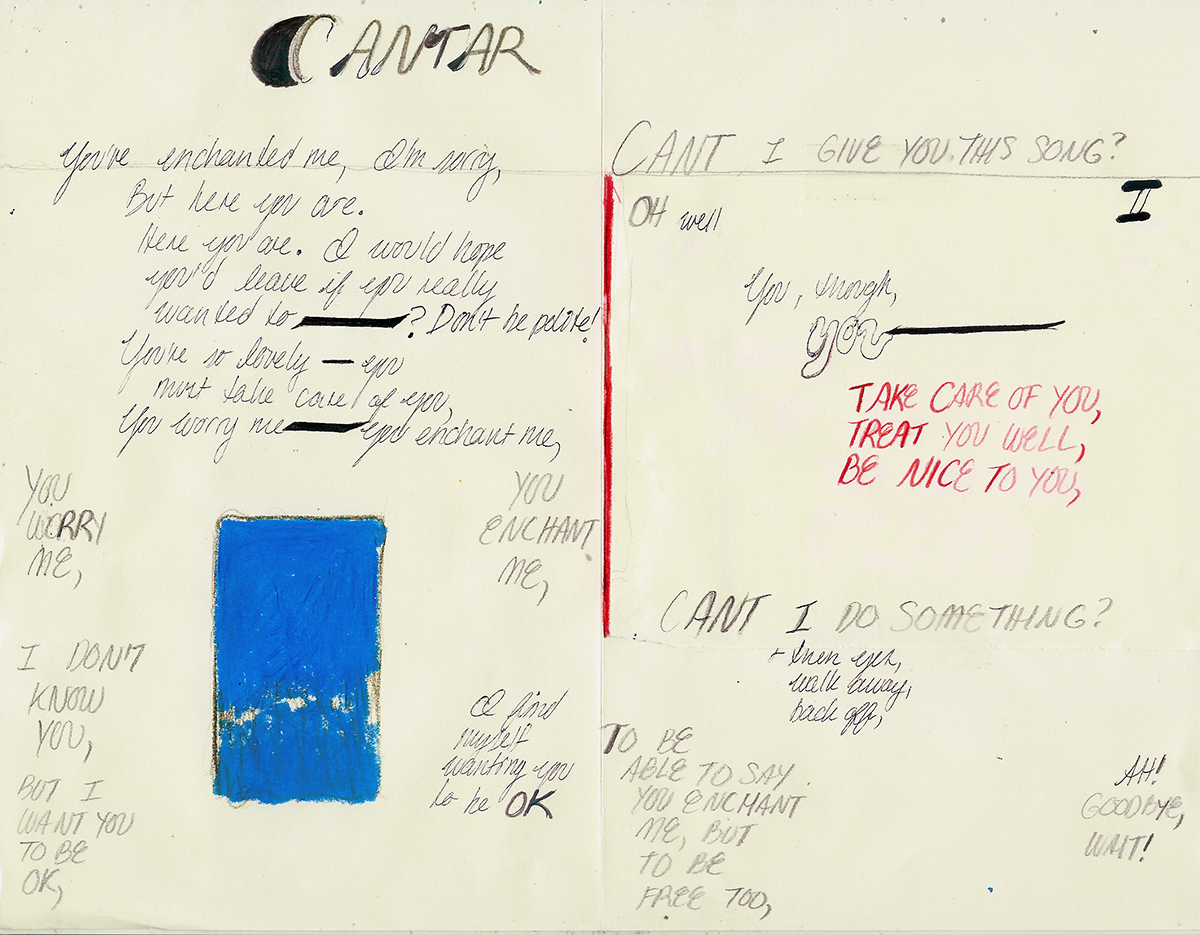 CANTAR
You've enchanted me, I'm sorry,
But here you are.
Here you are. I would hope
you'd leave if you really
wanted to —? Don't be polite!
You're so lovely — you
must take care of you,
You worry me — you enchant me,
YOU
WORRY
ME,
YOU
ENCHANT
ME,
I DON'T
KNOW
YOU,
BUT I
WANT YOU
TO BE
OK,
I find
myself
wanting you
to be OK
CANT I GIVE YOU THIS SONG?
II
OH well
You, though,
you —
TAKE CARE OF YOU,
TREAT YOU WELL,
BE NICE TO YOU,
CANT I DO SOMETHING?
+ then
walk away,
back off,
TO BE
ABLE TO SAY
YOU ENCHANT
ME, BUT
TO BE
FREE TOO,
AH!
GOODBYE,
WAIT!